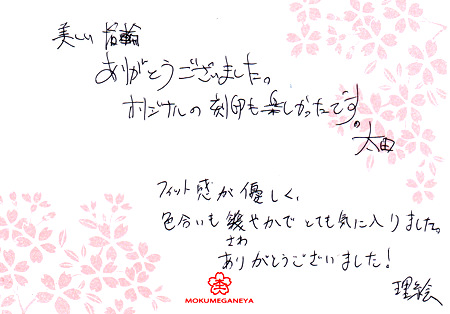 美しい指輪
ありがとうございました。
オリジナルの刻印も楽しかったです。
太田
フィット感が優しく、
色合いも爽やかで とても気に入りました。
さわ
ありがとうございました!
理絵
MOKUMEGANEYA